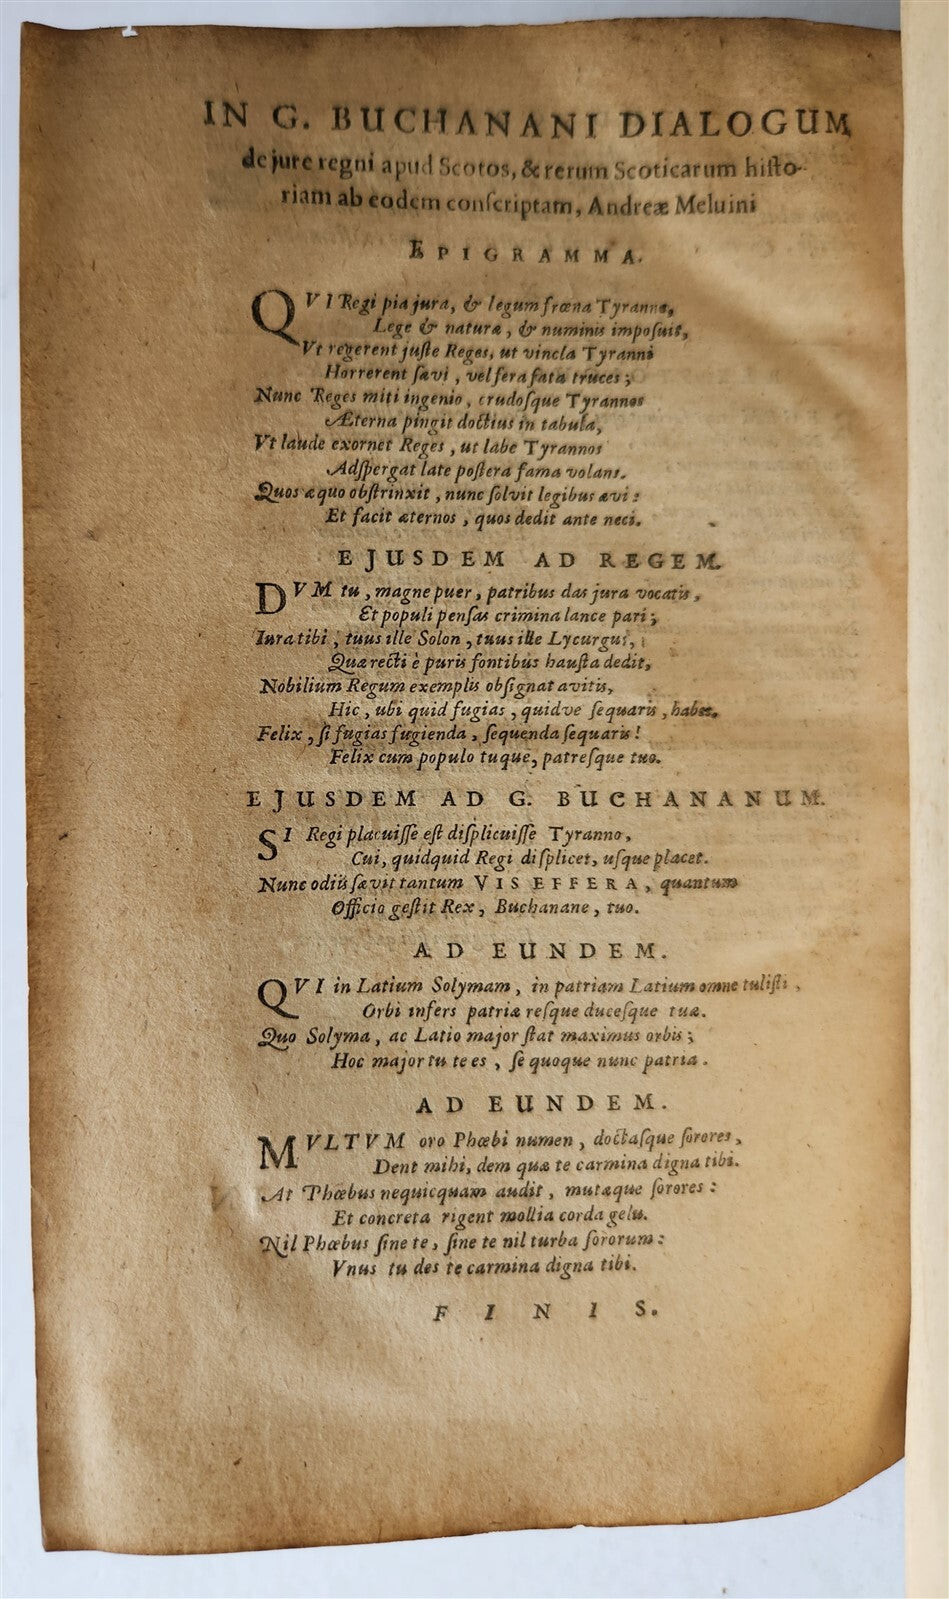 IN G. BUCHANANI DIALOGUM
de jure regni apud Scotos, & rerum Scoticarum histo-
riam ab eodem conscriptam, Andreæ Meluini
EPIGRAMMA.
QVI Regi pia jura, & legum fræna Tyranno,
Lege & naturæ, & numinis imposuit,
Vt regerent juste Reges, ut vincla Tyranni
Horrerent sævi, vel fera fata truces;
Nunc Reges miti ingenio, crudosque Tyrannos
Æterna pingit doctius in tabula,
Vt laude exornet Reges, ut labe Tyrannos
Adspergat late postera fama volans.
Quos æquo obstrinxit, nunc solvit legibus ævi:
Et facit æternos, quos dedit ante neci.
EJUSDEM AD REGEM.
DVM tu, magne puer, patribus das jura vocatis,
Et populi pensas crimina lance pari;
Iura tibi, tuus ille Solon, tuus ille Lycurgus,
Quæ recti è puris fontibus hausta dedit,
Nobilium Regum exemplis obsignat avitis,
Hic, ubi quid fugias, quidve sequaris, habes.
Felix, si fugias fugienda, sequenda sequaris!
Felix cum populo tuque, patresque tuo.
EJUSDEM AD G. BUCHANANUM.
SI Regi placuisse est displicuisse Tyranno,
Cui, quidquid Regi displicet, usque placet.
Nunc odiis sævit tantum VIS EFFERA, quantum
Officio gestit Rex, Buchanane, tuo.
AD EUNDEM.
QVI in Latium Solymam, in patriam Latium omne tulisti,
Orbi infers patriæ resque ducesque tuæ.
Quo Solyma, ac Latio major stat maximus orbis;
Hoc major tu te es, se quoque nunc patria.
AD EUNDEM.
MVLTVM oro Phœbi numen, doctasque sorores,
Dent mihi, dem quæ te carmina digna tibi.
At Phœbus nequicquam audit, mutæque sorores:
Et concreta rigent mollia corda gelu.
Nil Phœbus sine te, sine te nil turba sororum:
Vnus tu des te carmina digna tibi.
FINIS.